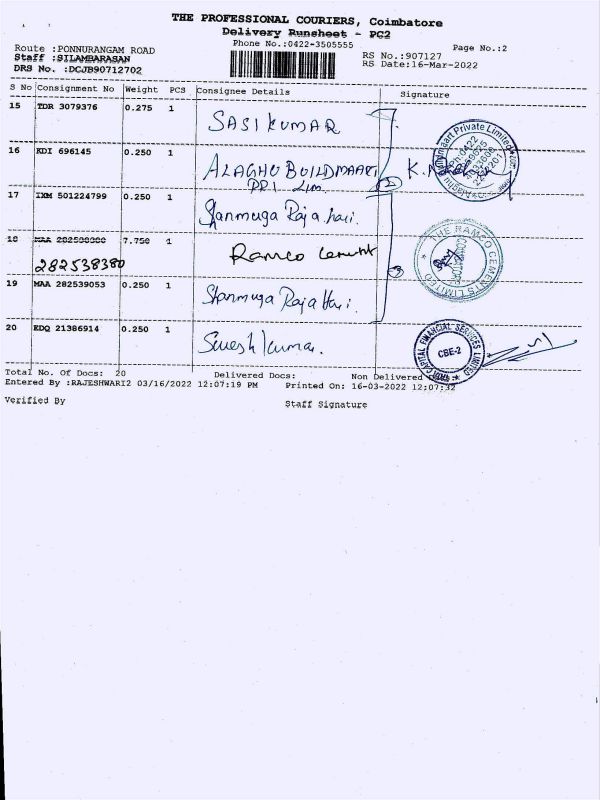 THE PROFESSIONAL COURIERS, Coimbatore
Delivery Runsheet - PC2
Phone No.:0422-3505555
Page No.:2
Route :PONNURANGAM ROAD
Staff :SILAMBARASAN
DRS No. :DCJB90712702
RS No.:907127
RS Date:16-Mar-2022
S No Consignment No Weight PCS Consignee Details Signature
15 TDR 3079376 0.275 1 SASIKUMAR
16 KDI 696145 0.250 1 ALAGHU BUILDMAART
PRI Lim
17 IXM 501224799 0.250 1 Shanmuga Raja hari.
18 MAA 282538380 7.750 1 Ramco Cement
282538380
19 MAA 282539053 0.250 1 Shanmuga Raja Hari.
20 EDQ 21386914 0.250 1 Suresh kumar.
THE RAMCO CEMENTS LIMITED
COIMBATORE
CAPITAL FINANCIAL SERVICES LIMITED
CBE-2
Total No. Of Docs: 20 Delivered Docs: Non Delivered Docs:
Entered By :RAJESHWARI2 03/16/2022 12:07:19 PM Printed On: 16-03-2022 12:07:32
Verified By Staff Signature